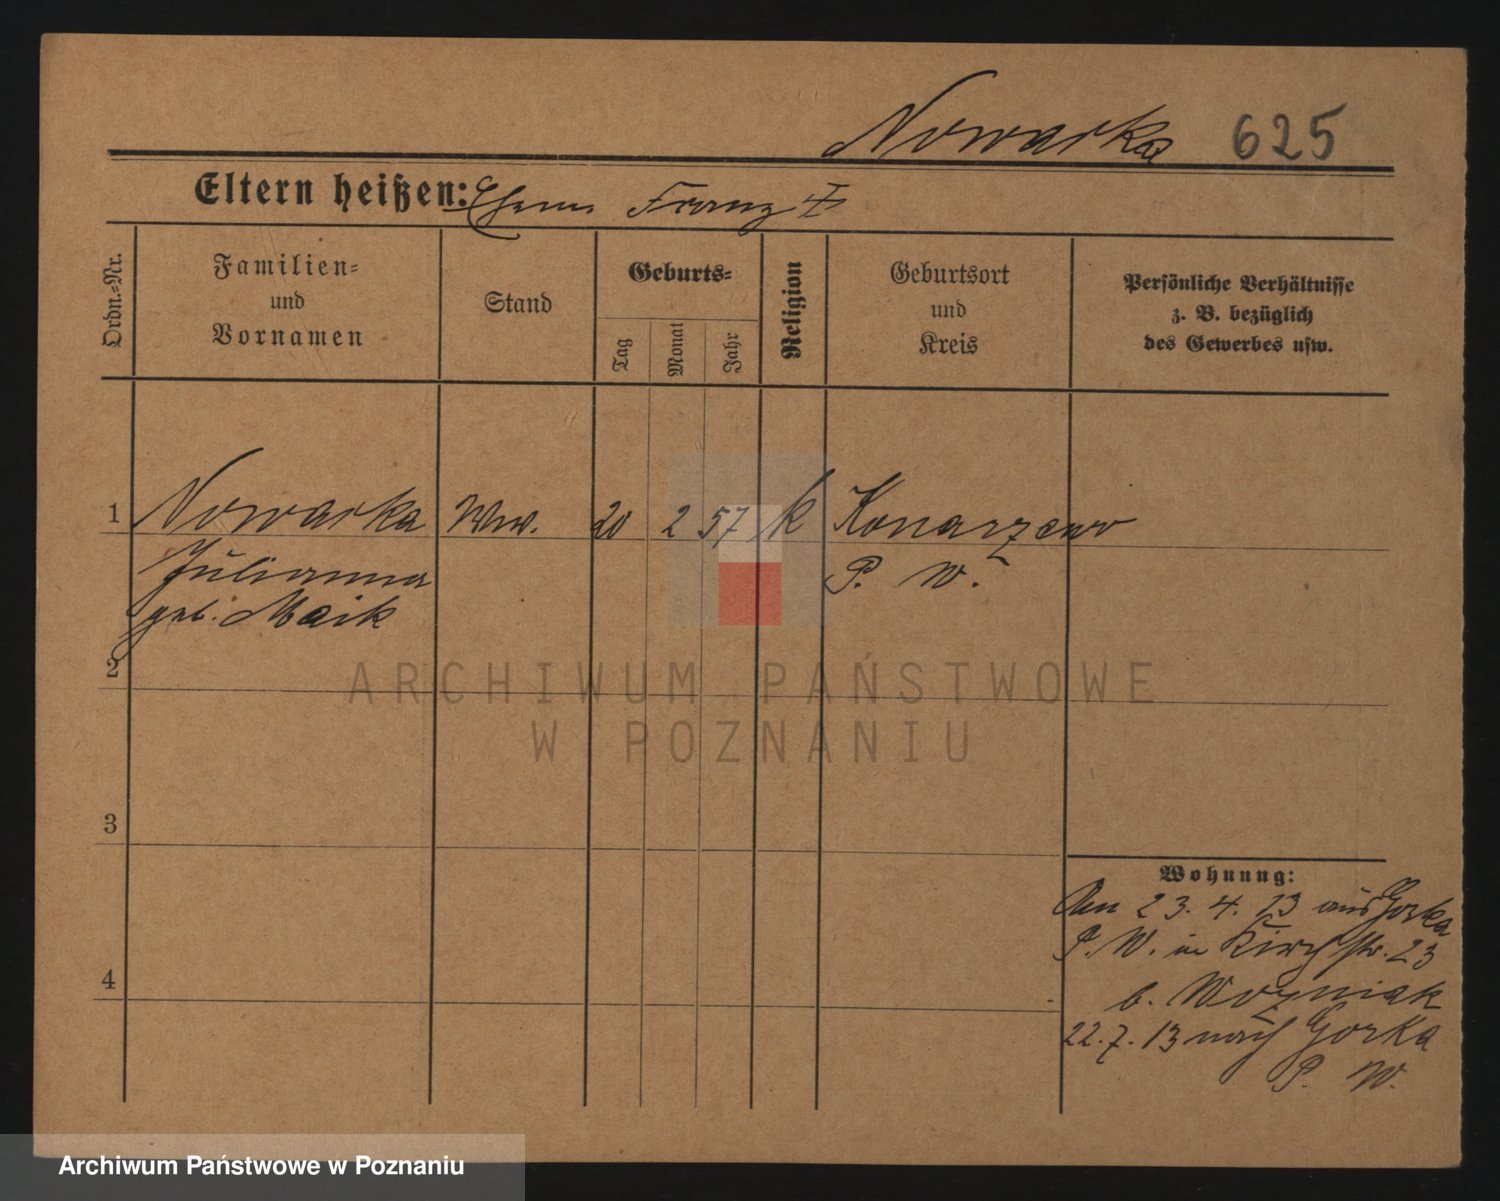 Nowarka 625
Eltern heißen: Ehem Franz ‡
Ordn.-Nr.
Familien-
und
Vornamen
Stand
Geburts-
Tag
Monat
Jahr
Religion
Geburtsort
und
Kreis
Persönliche Verhältnisse
z. B. bezüglich
des Gewerbes usw.
1 Nowarka Ww. 20 2 57 k Konarzewo
Julianna P. W.
geb. Maik
2
ARCHIWUM PAŃSTWOWE
W POZNANIU
3
Wohnung:
Am 23. 4. 13 aus Gorka
P. W. in Kirchstr. 23
4
b. Wozniak
22. 7. 13 nach Gorka
P. W.
Archiwum Państwowe w Poznaniu